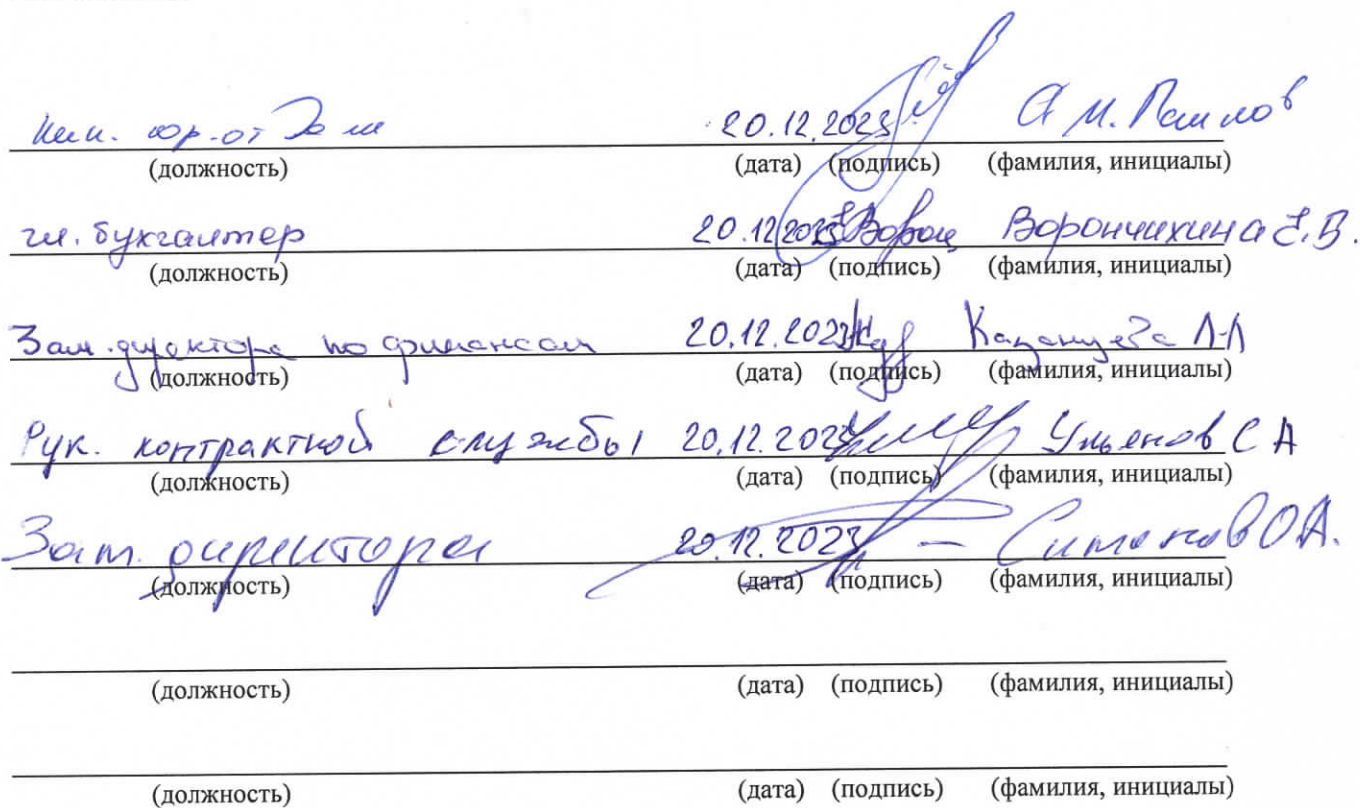 20.12.2023 А.М. Павлов
(должность) (дата) (подпись) (фамилия, инициалы)
гл. бухгалтер 20.12.2023 Ворончихина Е.В.
(должность) (дата) (подпись) (фамилия, инициалы)
Зам. директора по финансам 20.12.2023 Казанцева Л.Л
(должность) (дата) (подпись) (фамилия, инициалы)
Рук. контрактной службы 20.12.2023 Ульянов С А
(должность) (дата) (подпись) (фамилия, инициалы)
Зам. директора 20.12.2023 О.А.
(должность) (дата) (подпись) (фамилия, инициалы)
(должность) (дата) (подпись) (фамилия, инициалы)
(должность) (дата) (подпись) (фамилия, инициалы)